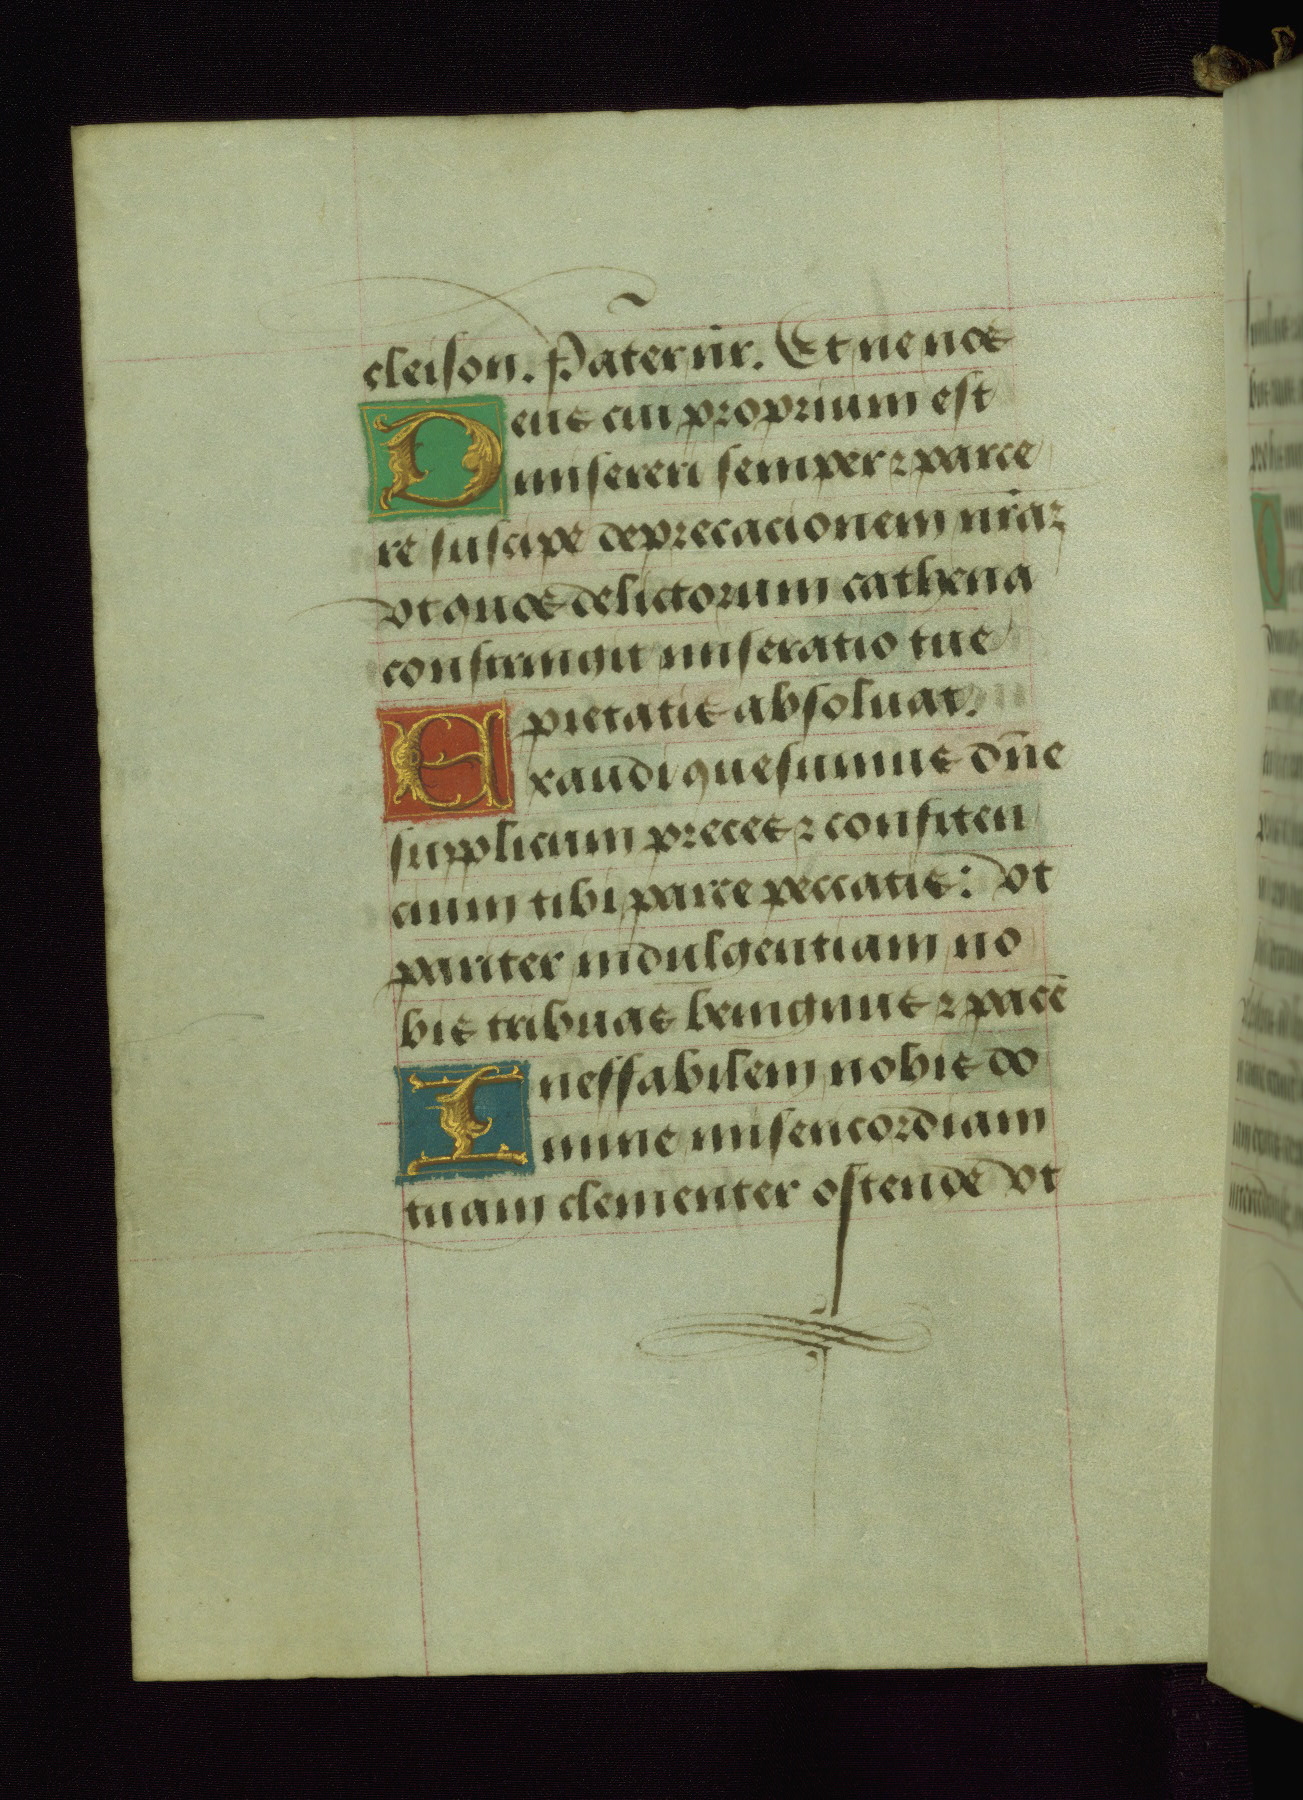 eleison. Pater nr̄. Et ne nos
Deus cui proprium est
misereri semper ⁊ parce
re suscipe deprecacionem nr̄aꝫ
vt quos delictorum cathena
constringit miseratio tue
pietatis absoluat.
Exaudi quesumus dn̄e
supplicum preces ⁊ confiten
cium tibi parce peccatis: vt
pariter indulgentiam no
bis tribuas benignus ⁊ pacē
Ineffabilem nobis do
mine misericordiam
tuam clementer ostende vt